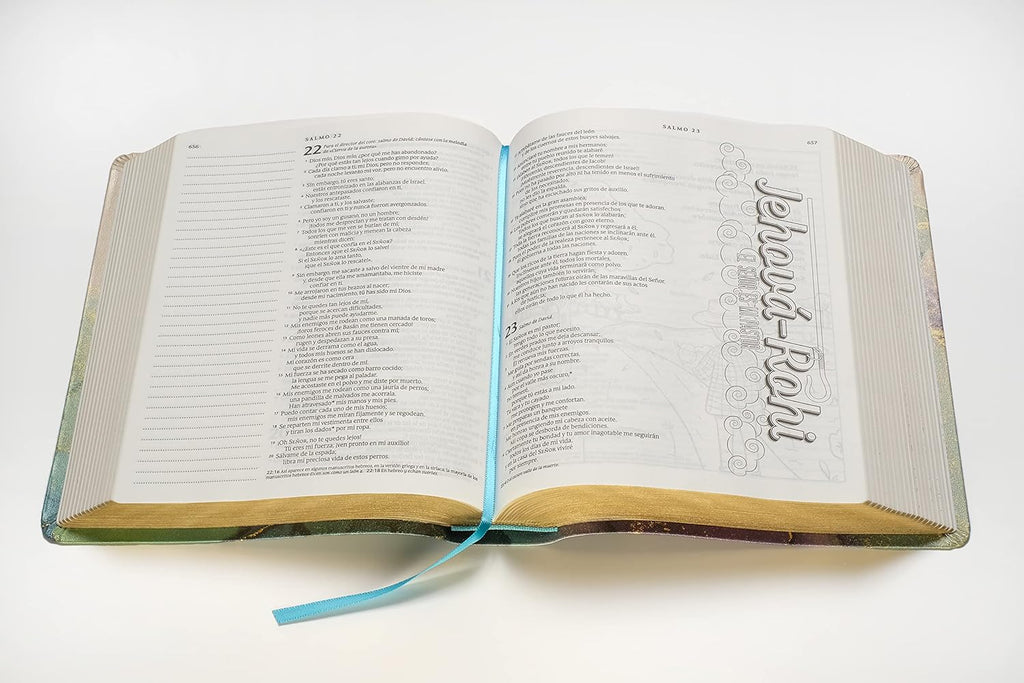 656
SALMO 22
22 Para el director del coro: salmo de David; cántese con la melodía
de «Cierva de la aurora».
1 Dios mío, Dios mío, ¿por qué me has abandonado?
¿Por qué estás tan lejos cuando gimo por ayuda?
2 Cada día clamo a ti, mi Dios, pero no respondes;
cada noche levanto mi voz, pero no encuentro alivio.
3 Sin embargo, tú eres santo,
estás entronizado en las alabanzas de Israel.
4 Nuestros antepasados confiaron en ti,
y los rescataste.
5 Clamaron a ti, y los salvaste;
confiaron en ti y nunca fueron avergonzados.
6 Pero yo soy un gusano, no un hombre;
¡todos me desprecian y me tratan con desdén!
7 Todos los que me ven se burlan de mí;
sonríen con malicia y menean la cabeza
mientras dicen:
8 «¿Este es el que confía en el SEÑOR?
Entonces ¡que el SEÑOR lo salve!
Si el SEÑOR lo ama tanto,
¡que el SEÑOR lo rescate!».
9 Sin embargo, me sacaste a salvo del vientre de mi madre
y, desde que ella me amamantaba, me hiciste
confiar en ti.
10 Me arrojaron en tus brazos al nacer;
desde mi nacimiento, tú has sido mi Dios.
11 No te quedes tan lejos de mí,
porque se acercan dificultades,
y nadie más puede ayudarme.
12 Mis enemigos me rodean como una manada de toros;
¡toros feroces de Basán me tienen cercado!
13 Como leones abren sus fauces contra mí;
rugen y despedazan a su presa.
14 Mi vida se derrama como el agua,
y todos mis huesos se han dislocado.
Mi corazón es como cera
que se derrite dentro de mí.
15 Mi fuerza se ha secado como barro cocido;
la lengua se me pega al paladar.
Me acostaste en el polvo y me diste por muerto.
16 Mis enemigos me rodean como una jauría de perros;
una pandilla de malvados me acorrala.
Han atravesado* mis manos y mis pies.
17 Puedo contar cada uno de mis huesos;
mis enemigos me miran fijamente y se regodean.
18 Se reparten mi vestimenta entre ellos
y tiran los dados* por mi ropa.
19 ¡Oh SEÑOR, no te quedes lejos!
Tú eres mi fuerza, ¡ven pronto en mi auxilio!
20 Sálvame de la espada;
libra mi preciosa vida de estos perros.
22:16 Así aparece en algunos manuscritos hebreos, en la versión griega y en la siríaca; la mayoría de los
manuscritos hebreos dicen son como un león a. 22:18 En hebreo y echan suertes.
SALMO 23
657
de las fauces del león
de los cuernos de estos bueyes salvajes.
tu nombre a mis hermanos;
tu pueblo reunido te alabaré.
al SEÑOR, todos los que le temen!
descendientes de Jacob!
reverencia, descendientes de Israel!
no ha pasado por alto ni ha tenido en menos el sufrimiento
de los necesitados;
no les dio la espalda,
sino que ha escuchado sus gritos de auxilio.
Te alabaré en la gran asamblea;
mis promesas en presencia de los que te adoran.
Los pobres comerán y quedarán satisfechos;
todos los que buscan al SEÑOR lo alabarán;
se alegrará el corazón con gozo eterno.
Toda la tierra reconocerá al SEÑOR y regresará a él;
todas las familias de las naciones se inclinarán ante él.
Pues el poder de la realeza pertenece al SEÑOR;
él gobierna a todas las naciones.
los ricos de la tierra hagan fiesta y adoren.
ante él, todos los mortales,
cuya vida terminará como polvo.
hijos también lo servirán;
generaciones futuras oirán de las maravillas del Señor.
A los que aún no han nacido les contarán de sus actos
de justicia;
ellos oirán de todo lo que él ha hecho.
23 Salmo de David.
El SEÑOR es mi pastor;
tengo todo lo que necesito.
En verdes prados me deja descansar;
me conduce junto a arroyos tranquilos.
Él renueva mis fuerzas.
Me guía por sendas correctas,
y así da honra a su nombre.
Aun cuando yo pase
por el valle más oscuro,*
no temeré,
porque tú estás a mi lado.
Tu vara y tu cayado
me protegen y me confortan.
Me preparas un banquete
en presencia de mis enemigos.
Me honras ungiendo mi cabeza con aceite.
Mi copa se desborda de bendiciones.
Ciertamente tu bondad y tu amor inagotable me seguirán
todos los días de mi vida,
y en la casa del SEÑOR viviré
por siempre.
Jehová-Rohi